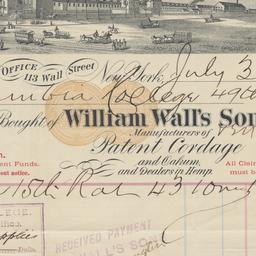 OFFICE
113 Wall Street
New York, July 3
College 49th
Bought of William Wall's Son
Manufacturers of
Patent Cordage
and Oakum,
and Dealers in Hemp.
ent Funds.
out notice.
All Clai
must b
15th Rat 43
RECEIVED PAYMENT
WALL'S SO
LEGE.
Dolls.